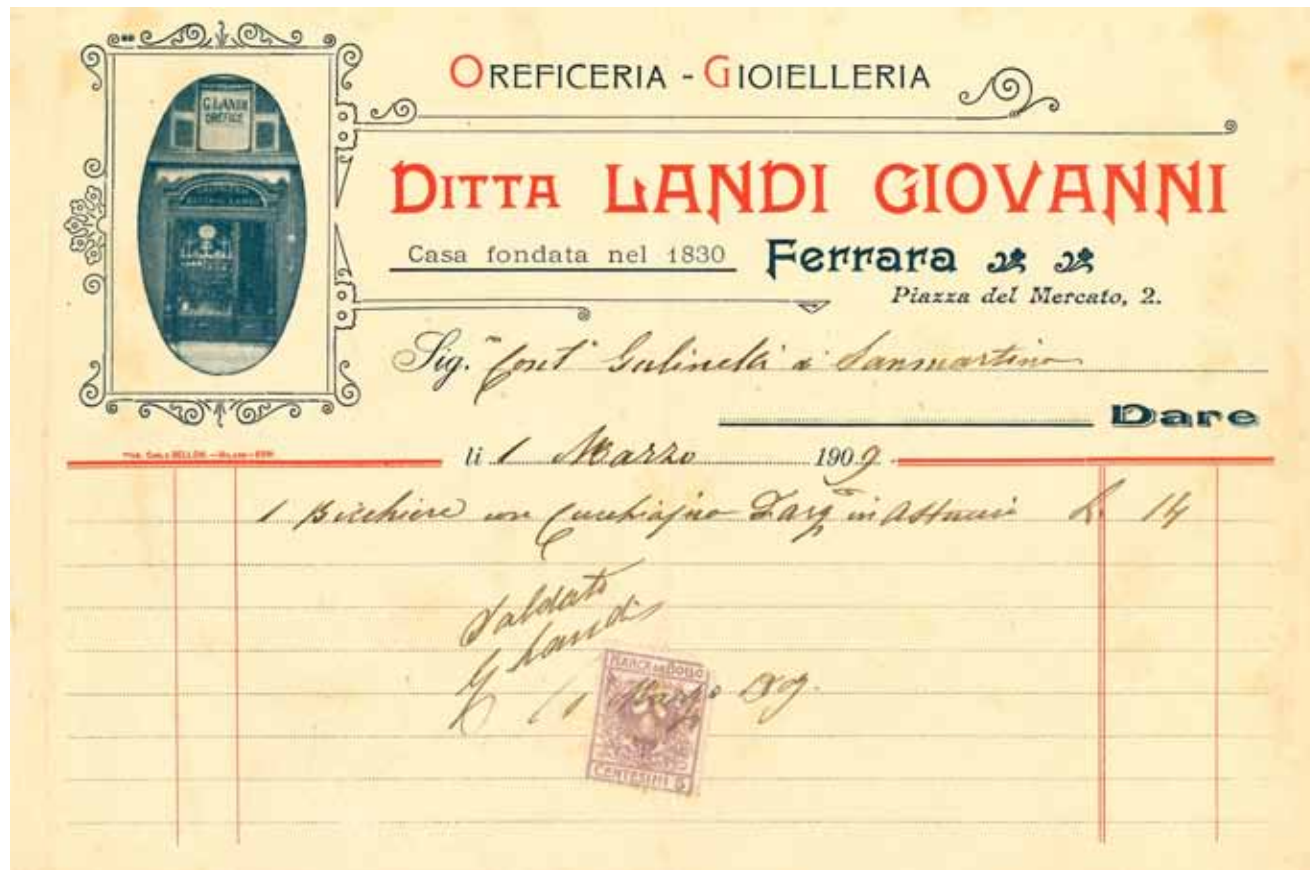 OREFICERIA - GIOIELLERIA
G. LANDI
OREFICE
DITTA LANDI GIOVANNI
Casa fondata nel 1830 Ferrara
Piazza del Mercato, 2.
Sig. Cont Gulinelli di Sanmartino
Dare
li 1 Marzo 1909
1 Bicchiere con Cucchiajno D'arg in Astuccio L. 14
Saldato
G Landi
1 Marzo 909.
MARCA DA BOLLO
CENTESIMI 5